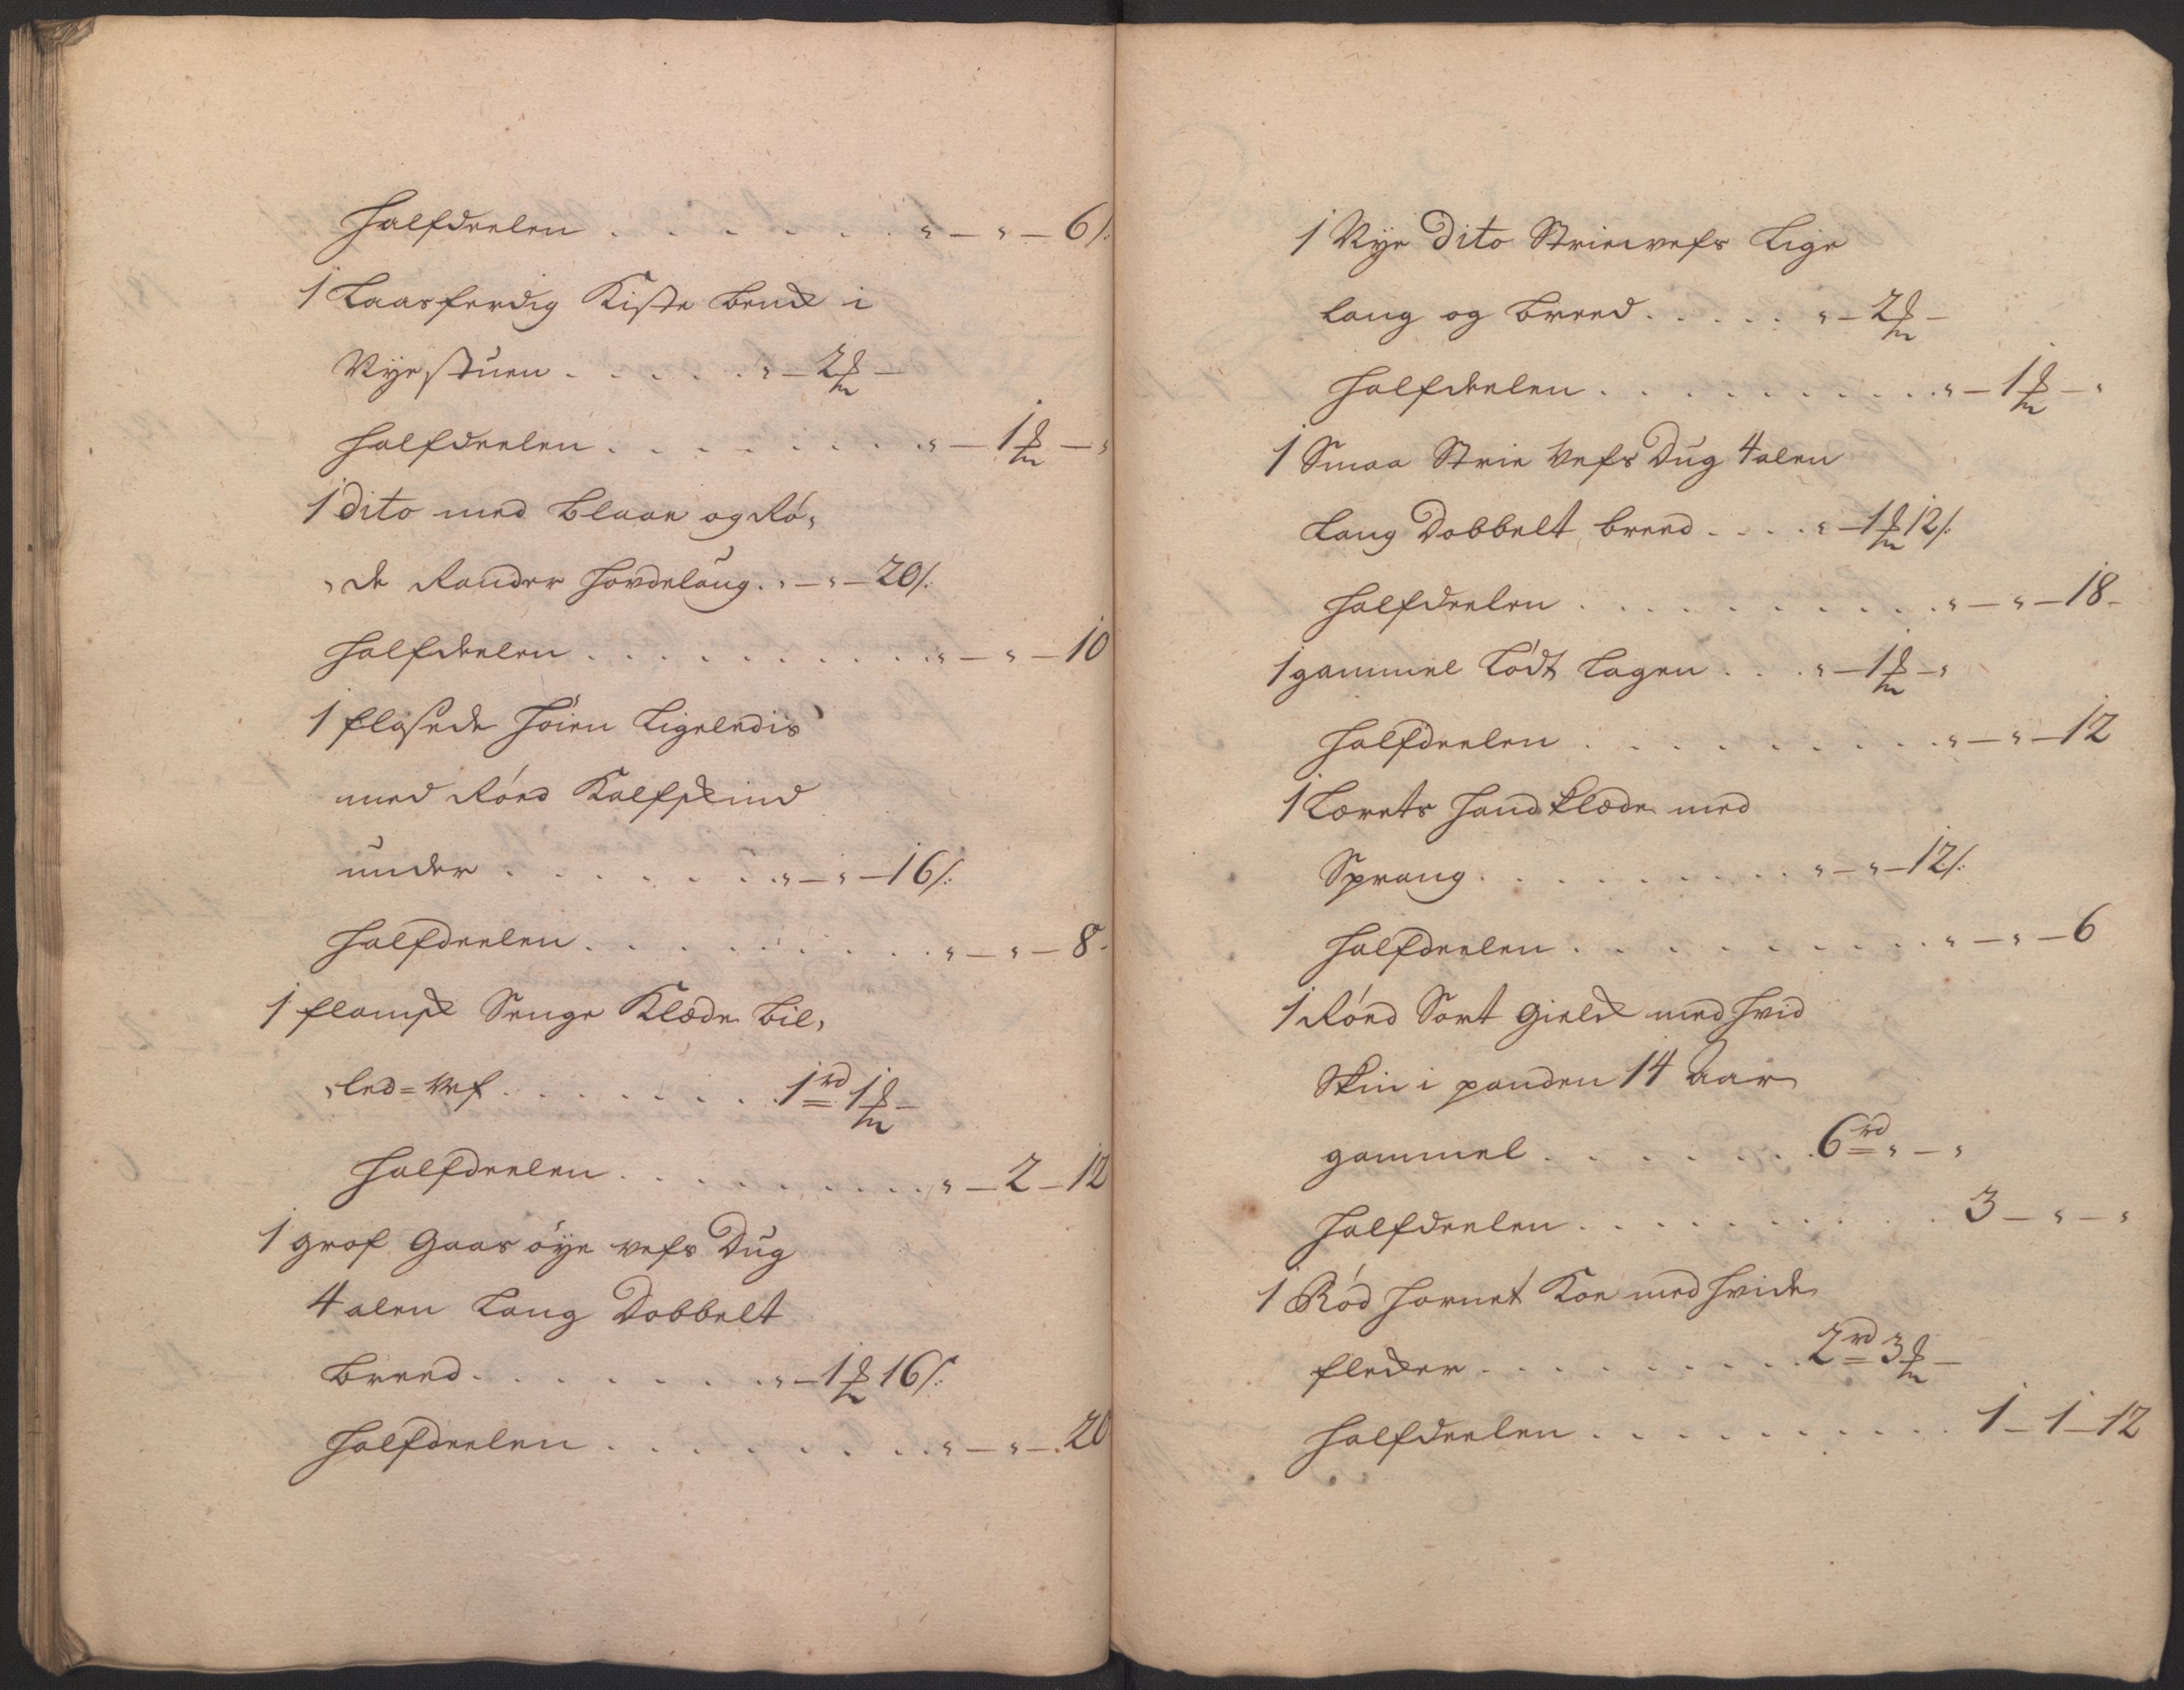 Halfdeelen . . . . . . . „ — „ — 6 ß:
1 Laasferdig Kiste benck i
Nyestuen . . . . . „ — 2 ℳ —
Halfdeelen . . . . . . . . . „ — 1 ℳ — „
1 dito med blaae og Rø„
„de Rander Hovdelaug . „ — „ — 20 ß:
Halfdeelen . . . . . . . . . . „ — „ — 10
1 flosede Høien Ligeledis
med Røed Kalfskind
under . . . . . . . „ — „ — 16 ß:
Halfdeelen . . . . . . . . . . „ — „ — 8 -
1 flamsk Senge Klæde bil„
„led=Vef . . . . . . . . 1 rd 1 ℳ —
Halfdeelen . . . . . . . . . „ — 2 — 12
1 grof Gaas øye vefs Dug
4 alen Lang Dobbelt
breed . . . . . . . „ — 1 ℳ 16 ß:
Halfdeelen . . . . . . . . . „ — „ — 20
1 Nye dito Strievefs Lige
lang og breed . . . . . „ — 2 ℳ —
Halfdeelen . . . . . . . . . . „ — 1 ℳ — „
1 Smaa Strie Vefs Dug 4 alen
Lang Dobbelt breed . . . . „ — 1 ℳ 12 ß:
Halfdeelen . . . . . . . . . . „ — „ — 18 -
1 gammel Lødt Lagen . . . „ — 1 ℳ — „
Halfdeelen . . . . . . . . . . „ — „ — 12
1 Lærets Handklæde med
Sprang . . . . . . . . . „ — „ — 12 ß:
Halfdeelen . . . . . . . . . . „ — „ — 6
1 Røed Sort Gield med hvid
Skin i panden 14 Aar
gammel . . . . . . . 6 rd „ — „
Halfdeelen . . . . . . . . . . 3 — „ — „
1 Rød Hornet Koe med hvide
flecker . . . . . . . . . 2 rd 3 ℳ —
Halfdeelen . . . . . . . . . . 1 — 1 — 12